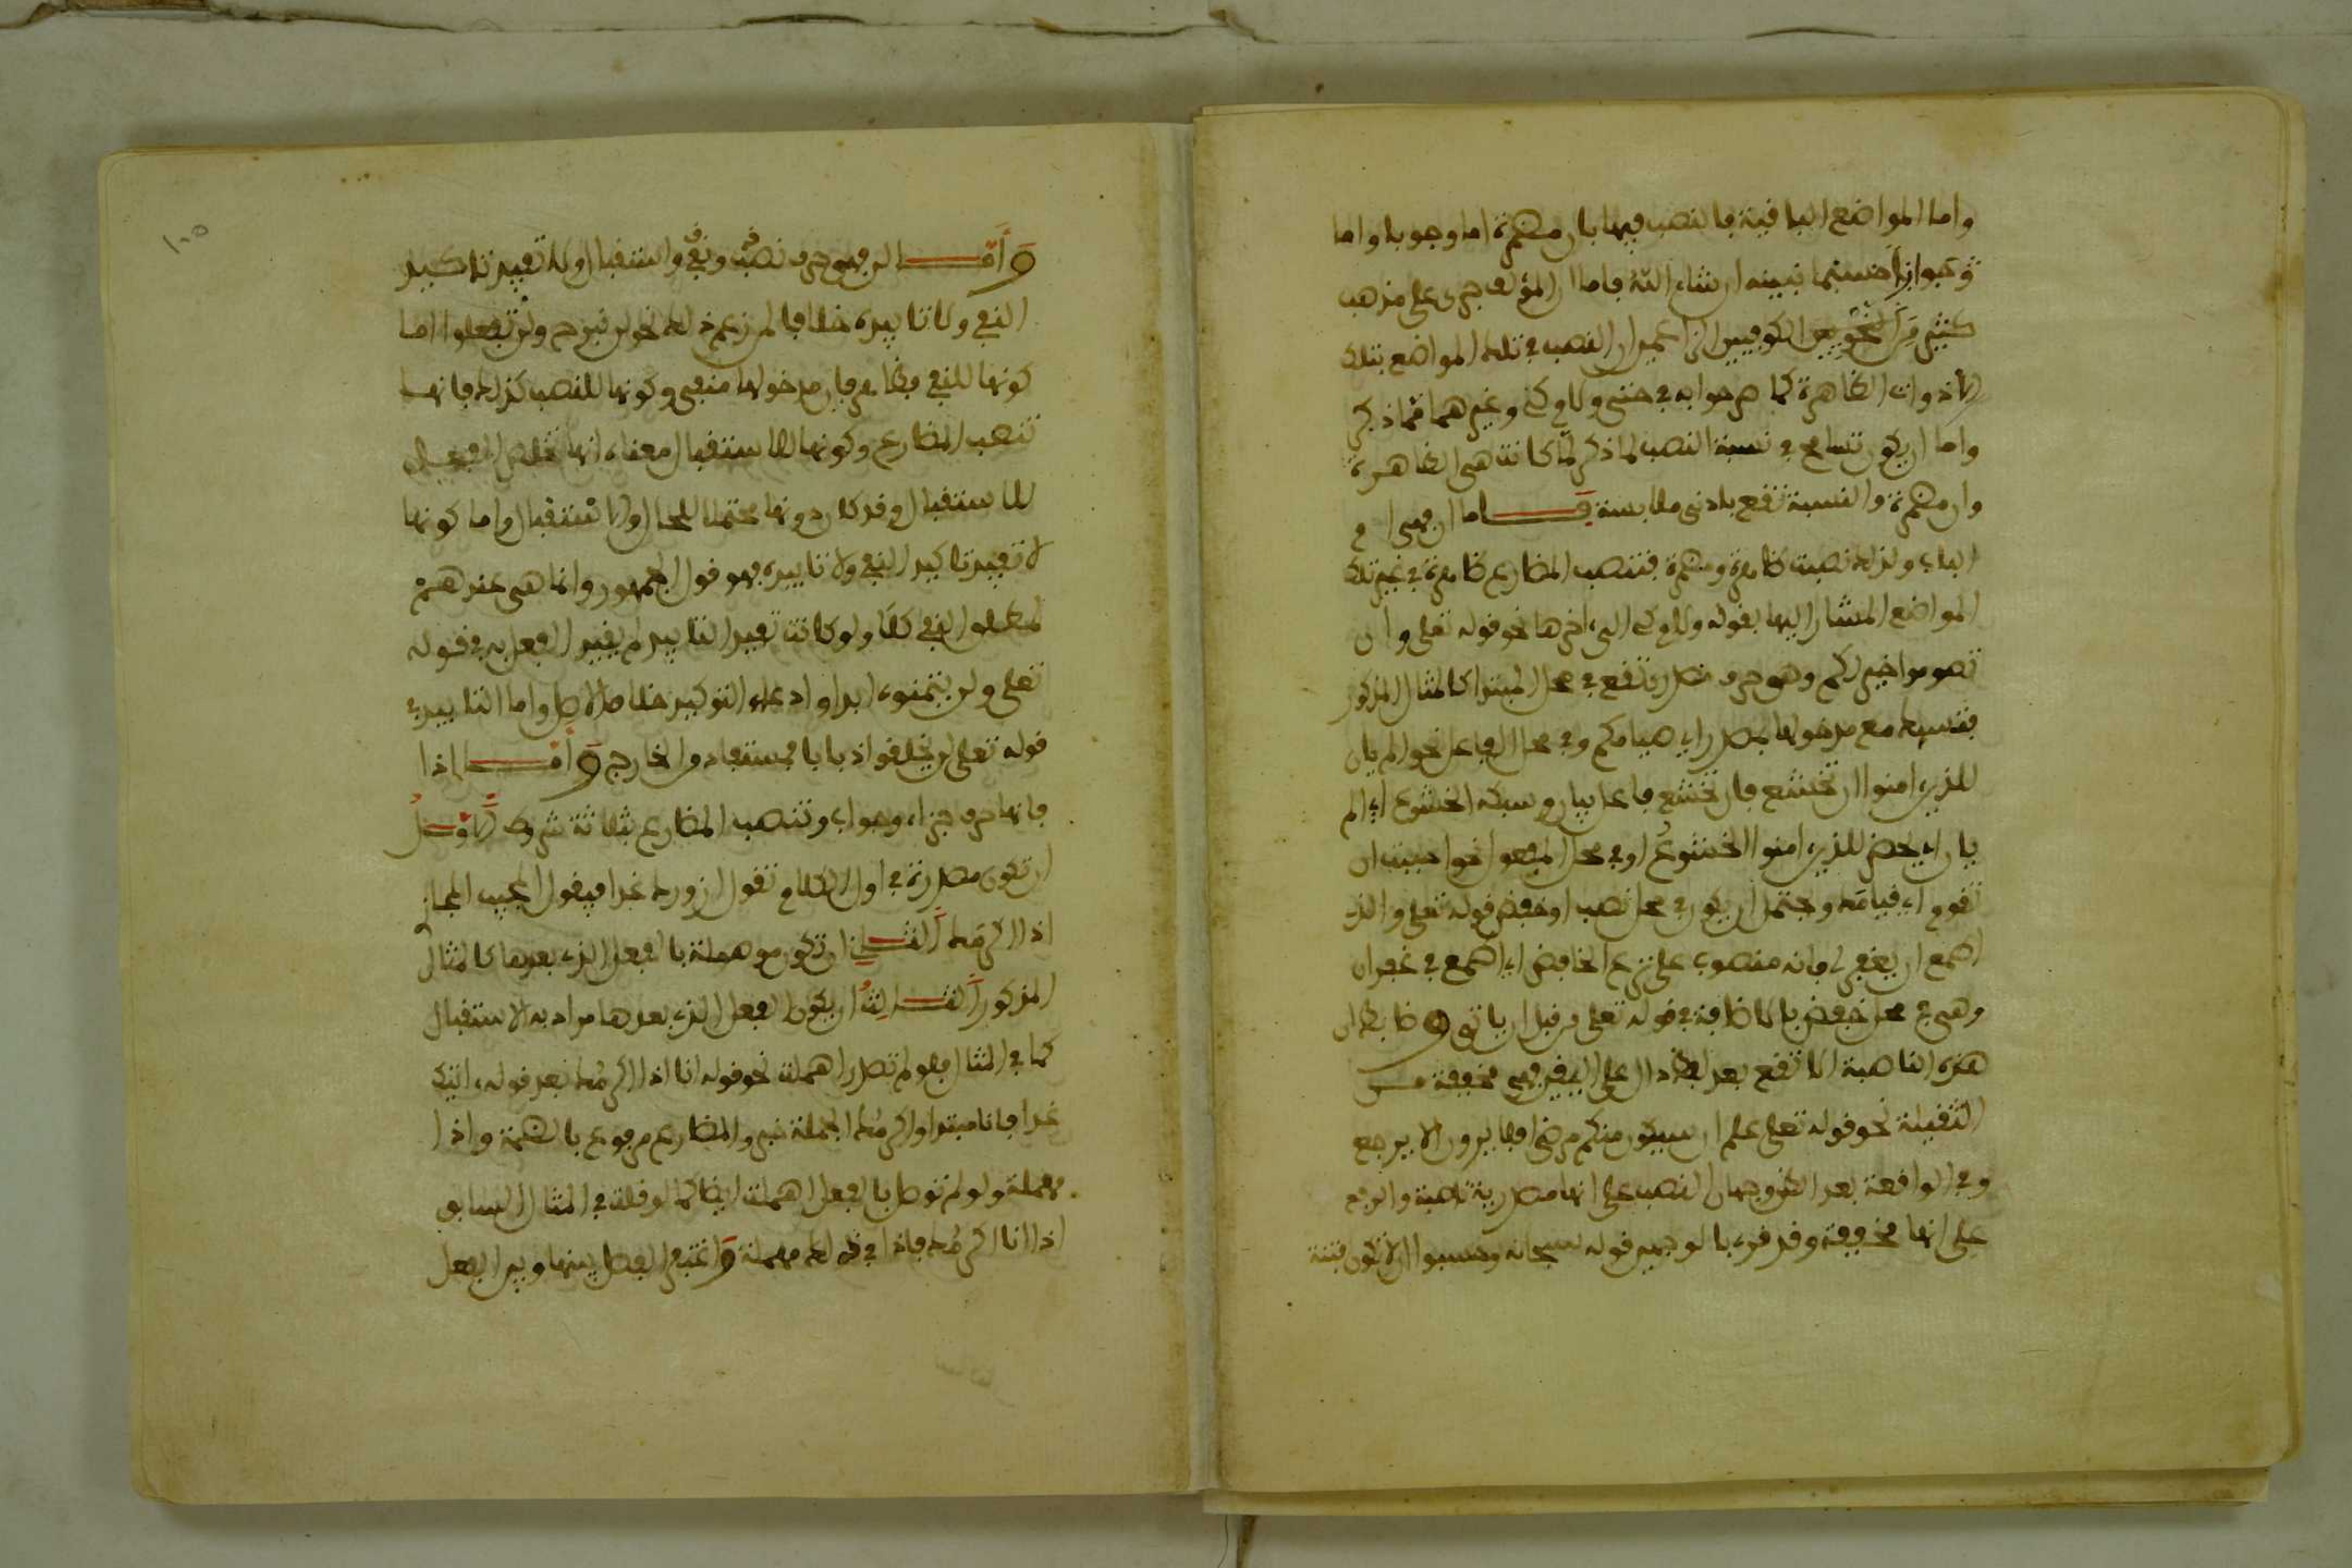 واما المواضع الباقية فالنصب فيها بان مضمرة اما وجوبا واما
جوازا حسبما نبينه ان شاء الله فاما ان المؤلف جرى على مذهب
كثير من النحويين الكوفيين الزاعمين ان النصب في تلك المواضع بتلك
الادوات الظاهرة كما صرحوا به في حتى ولام كي وغيرهما مما ذكر
واما ان يكون تسامح في نسبة النصب لما ذكر لما كانت هي الظاهرة
وان مضمرة والنسبة تقع بادنى ملابسة فاما ان فهي ام
الباب ولذلك نصبت ظاهرة ومضمرة فتنصب المضارع ظاهرة في غير تلك
المواضع المشار اليها بقوله ولام كي الى اخرها نحو قوله تعلى وان
تصوموا خير لكم وهو حرف مصدر تقع في محل المبتدا كالمثال المذكور
فتسبك مع مدخولها بمصدر اي صيامكم وفي محل الفاعل نحو الم يان
للذين امنوا ان تخشع فان تخشع فاعل بيان وسبكه الخشوع اي الم
يان اي يحضر للذين امنوا الخشوع او في محل المفعول نحو احببت ان
تقوم اي قيامك ويحتمل ان يكون في محل نصب او خفض قوله تعلى والذي
اطمع ان يغفر لي فانه منصوب على نزع الخافض اي اطمع في غفران
وهي في محل خفض بالاضافة في قوله تعلى من قبل ان ياتي وضابط ان
هذه الناصبة الا تقع بعد لفظ دال على اليقين فهي مخففة من
الثقيلة نحو قوله تعلى علم ان سيكون منكم مرضى افلا يرون الا يرجع
وفي الواقعة بعد الظن وجهان النصب على انها مصدرية ناصبة والرفع
على انها مخففة وقد قرئ بالوجهين قوله سبحانه وحسبوا الا تكون فتنة
واما لن فهو حرف نصب ونفي واستقبال ولا تفيد تاكيد
النفي ولا تابيده خلافا لمن زعم ذلك نحو لن نبرح ولن تفعلوا اما
كونها للنفي فظاهر فان مدخولها منفي وكونها للنصب كذلك فانها
تنصب المضارع وكونها للاستقبال معناه انها تخلص الفعل
للاستقبال وقد كان دونها محتملا للحال والاستقبال واما كونها
لا تفيد تاكيد النفي ولا تابيده فهو قول الجمهور وانما هي عندهم
لمطلق النفي كلا ولو كانت تفيد التابيد لم يقيد الفعل به في قوله
تعلى ولن يتمنوه ابدا وادعاء التوكيد خلاف الاصل واما التابيد في
قوله تعلى لن يخلقوا ذبابا فمستفاد من الخارج واما اذا
فانها حرف جزاء وجواب وتنصب المضارع بثلاثة شروط الاول
ان تكون مصدرة في اول الكلام تقول ازورك غدا فيقول المجيب المجاز
اذا اكرمك الثاني ان تكون موصولة بالفعل الذي بعدها كالمثال
المذكور الثالث ان يكون الفعل الذي بعدها مرادا به الاستقبال
كما في المثال فلو لم تصدر اهملت نحو قوله انا اذا اكرمك بعد قوله اتيك
غدا فانا مبتدا واكرمك الجملة خبر والمضارع مرفوع بالضمة واذا
مهملة ولو لم توصل بالفعل اهملت ايضا كما لو قلت في المثال السابق
اذا انا اكرمك فاذا في ذلك مهملة واغتفر الفصل بينها وبين الفعل